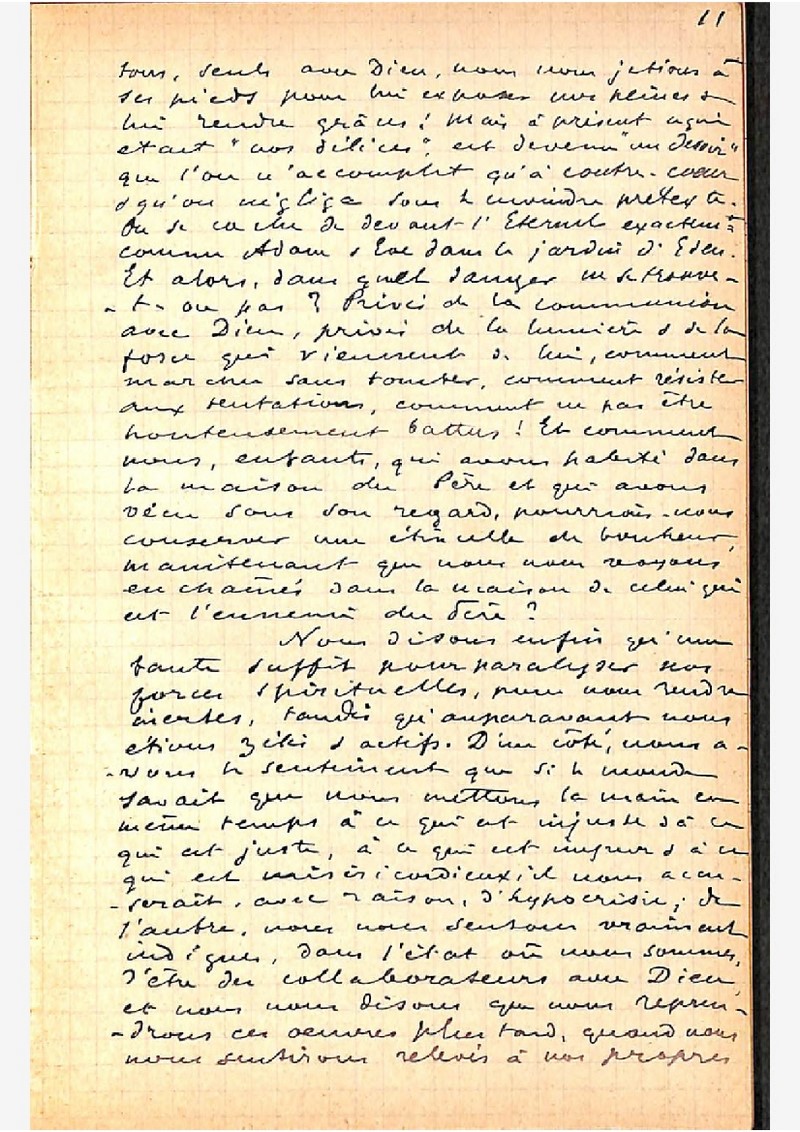 11
tous, seuls avec Dieu, nous nous jetions à
ses pieds pour lui exposer nos peines &
lui rendre grâces! Mais à présent ce qui
etait "nos délices", est devenu "un devoir"
que l'on n'accomplit qu'à contre-coeur
& qu'on néglige sous le moindre prétexte.
On se cache de devant l'Eternel exactemt
comme Adam & Eve dans le jardin d'Eden.
Et alors, dans quel danger ne se trouve-
-t-on pas? Privés de la communion
avec Dieu, privés de la lumière & de la
force qui viennent de lui, comment
marcher sans tomber, comment résister
aux tentations, comment ne pas être
honteusement battus! Et comment
nous, enfants, qui avons habité dans
la maison du Père et qui avons
vécu sous son regard, pourrions-nous
conserver une étincelle de bonheur,
maintenant que nous nous voyons
enchaînés dans la maison de celui qui
est l'ennemi du Père?
Nous disons enfin qu'une
faute suffit pour paralyser nos
forces spirituelles, pour nous rendre
inertes, tandis qu'auparavant nous
étions zélés & actifs. D'un côté, nous a-
-vons le sentiment que si le monde
savait que nous mettons la main en
même temps à ce qui est injuste & à ce
qui est juste, à ce qui est impur & à ce
qui est miséricordieux, il nous accu-
-serait, avec raison, d'hypocrisie; de
l'autre, nous nous sentons vraiment
indignes, dans l'état où nous sommes,
d'être des collaborateurs avec Dieu,
et nous nous disons que nous repren-
-drons ces oeuvres plus tard, quand nous
nous sentirons relevés à nos propres